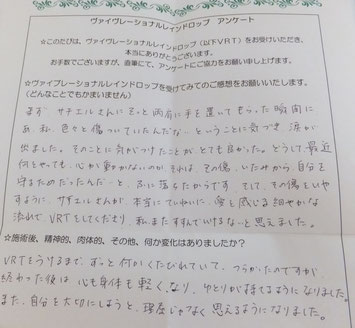 ヴァイヴレーショナルレインドロップ アンケート
☆このたびは、ヴァイヴレーショナルレインドロップ(以下VRT)をお受けいただき、
本当にありがとうございます。
お手数でございますが、自筆にて、アンケートにご協力をお願い申し上げます。
☆ヴァイブレーショナルレインドロップを受けてみてのご感想をお願いいたします。
(どんなことでもかまいません)
まず サチエルさんに そっと 両肩に手を置いてもらった瞬間に
あ、私、色々と傷ついていたんだな… ということに気づき、涙が
出ました。そのことに気がつけたことがとても良かった。どうして最近
何をやっても、心が動かないのか それは、その傷、いたみから自分を
守るためだったんだ…と、ふに落ちたからです。そして、その傷をいや
すように、サチエルさんが、本当にていねいに、愛を感じる細やかな
流れで、VRTをしてくださり、私、またすすんでいけるな…と思えました。
☆施術後、精神的、肉体的、その他、何か変化はありましたか?
VRTをうけるまで、ずっと何かくたびれていて、つらかったのですが、
終わった後は 心も身体も軽くなり、ゆとりが持てるようになりました。
また、自分を大切にしようと、理屈じゃなく 思えるようになりました。